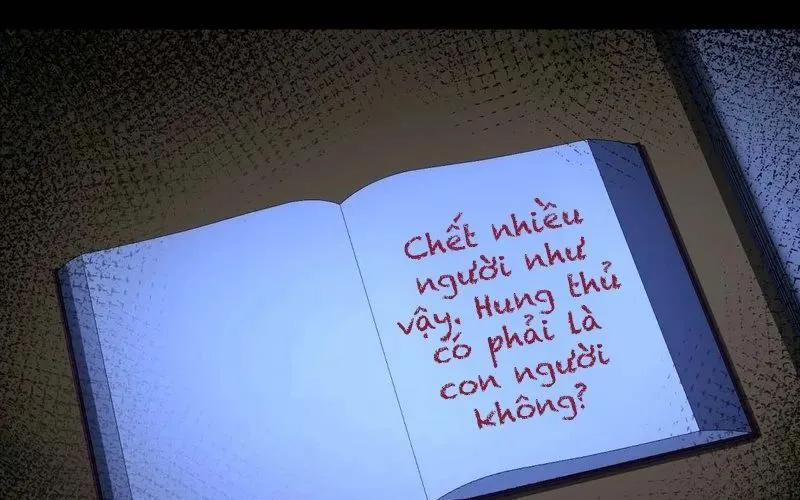 Chết nhiều
người như
vậy. Hung thủ
có phải là
con người
không?